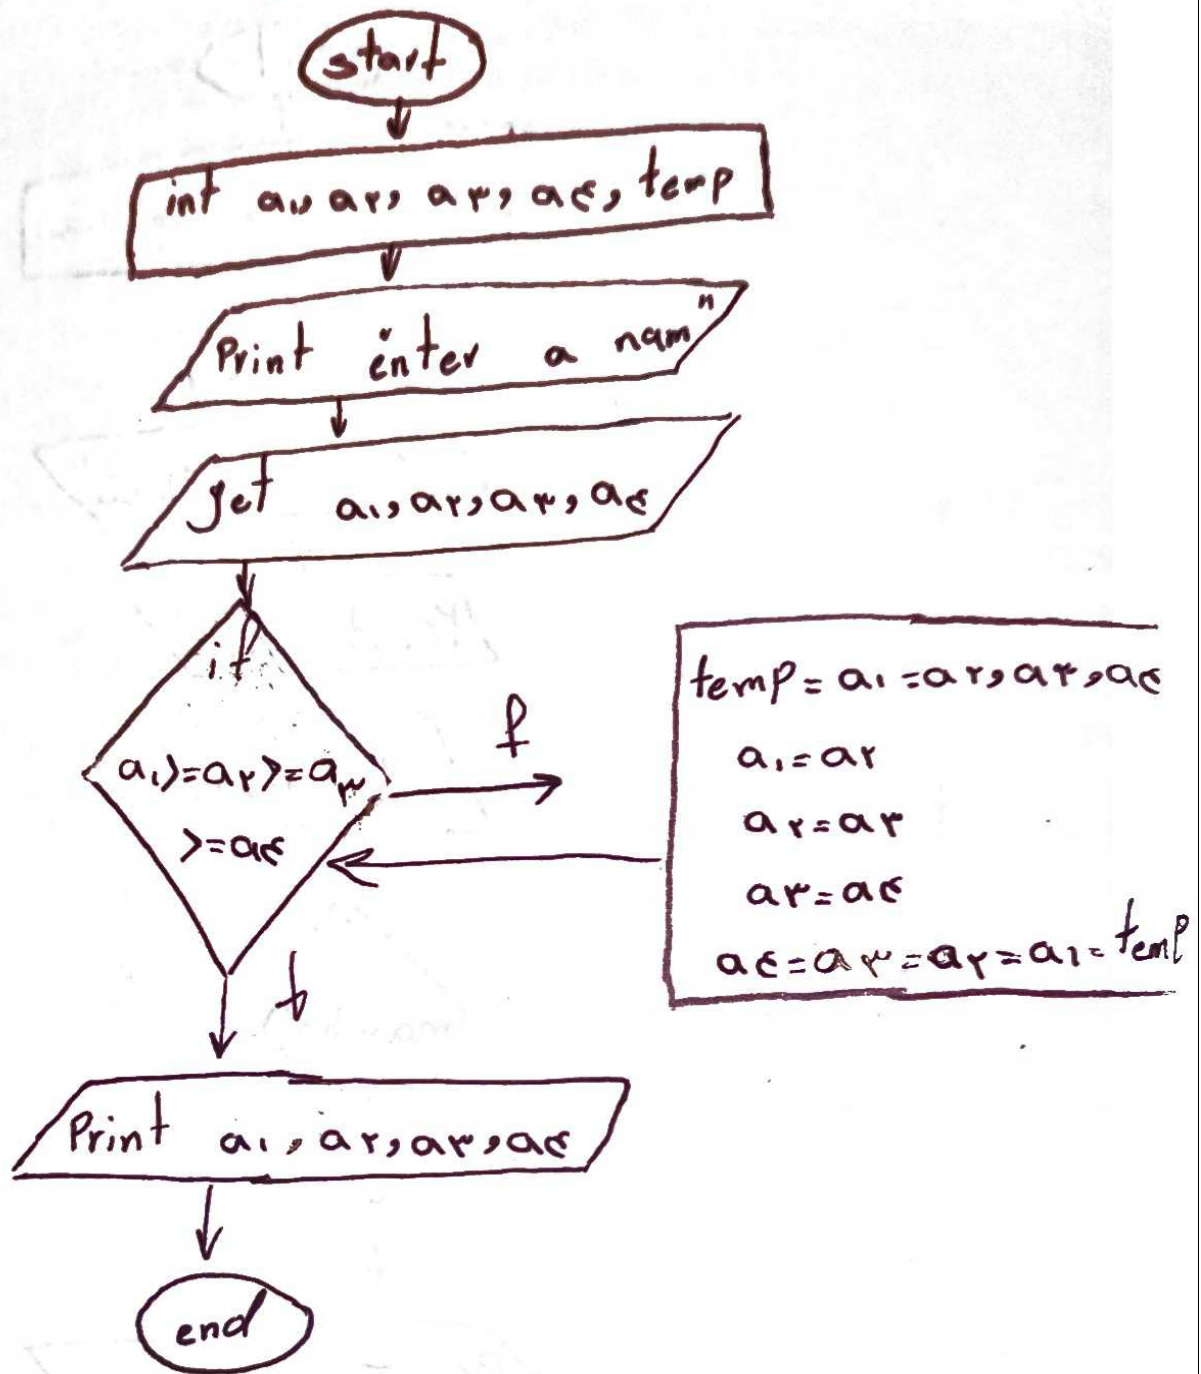 start
int a۱, a۲, a۳, a۴, temp
Print "enter a nam"
get a۱, a۲, a۳, a۴
if
a۱>=a۲>=a۳
>=a۴
f
temp=a۱=a۲, a۳, a۴
a۱=a۲
a۲=a۳
a۳=a۴
a۴=a۳=a۲=a۱=temp
t
Print a۱, a۲, a۳, a۴
end